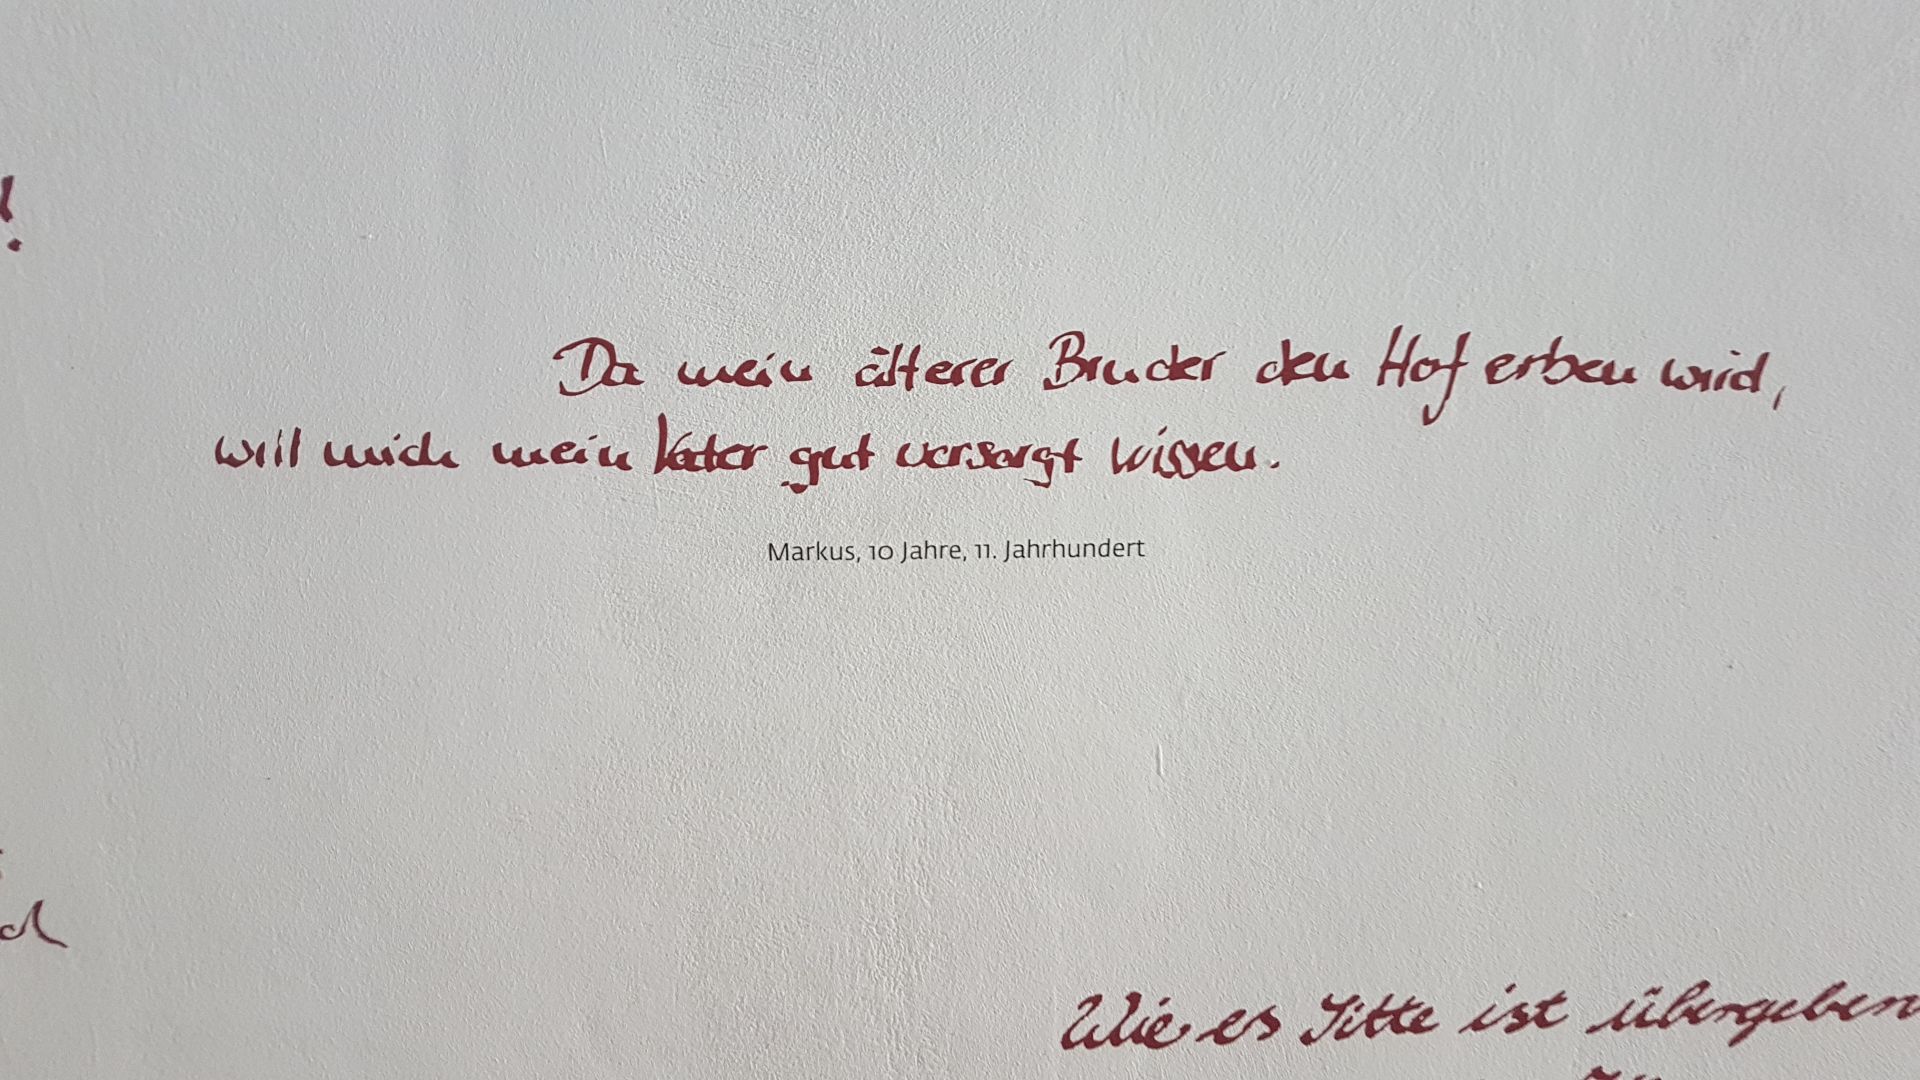 !
Da mein älterer Bruder den Hof erben wird,
will mich mein Vater gut versorgt wissen.
Markus, 10 Jahre, 11. Jahrhundert
d
Wie es Sitte ist übergeben